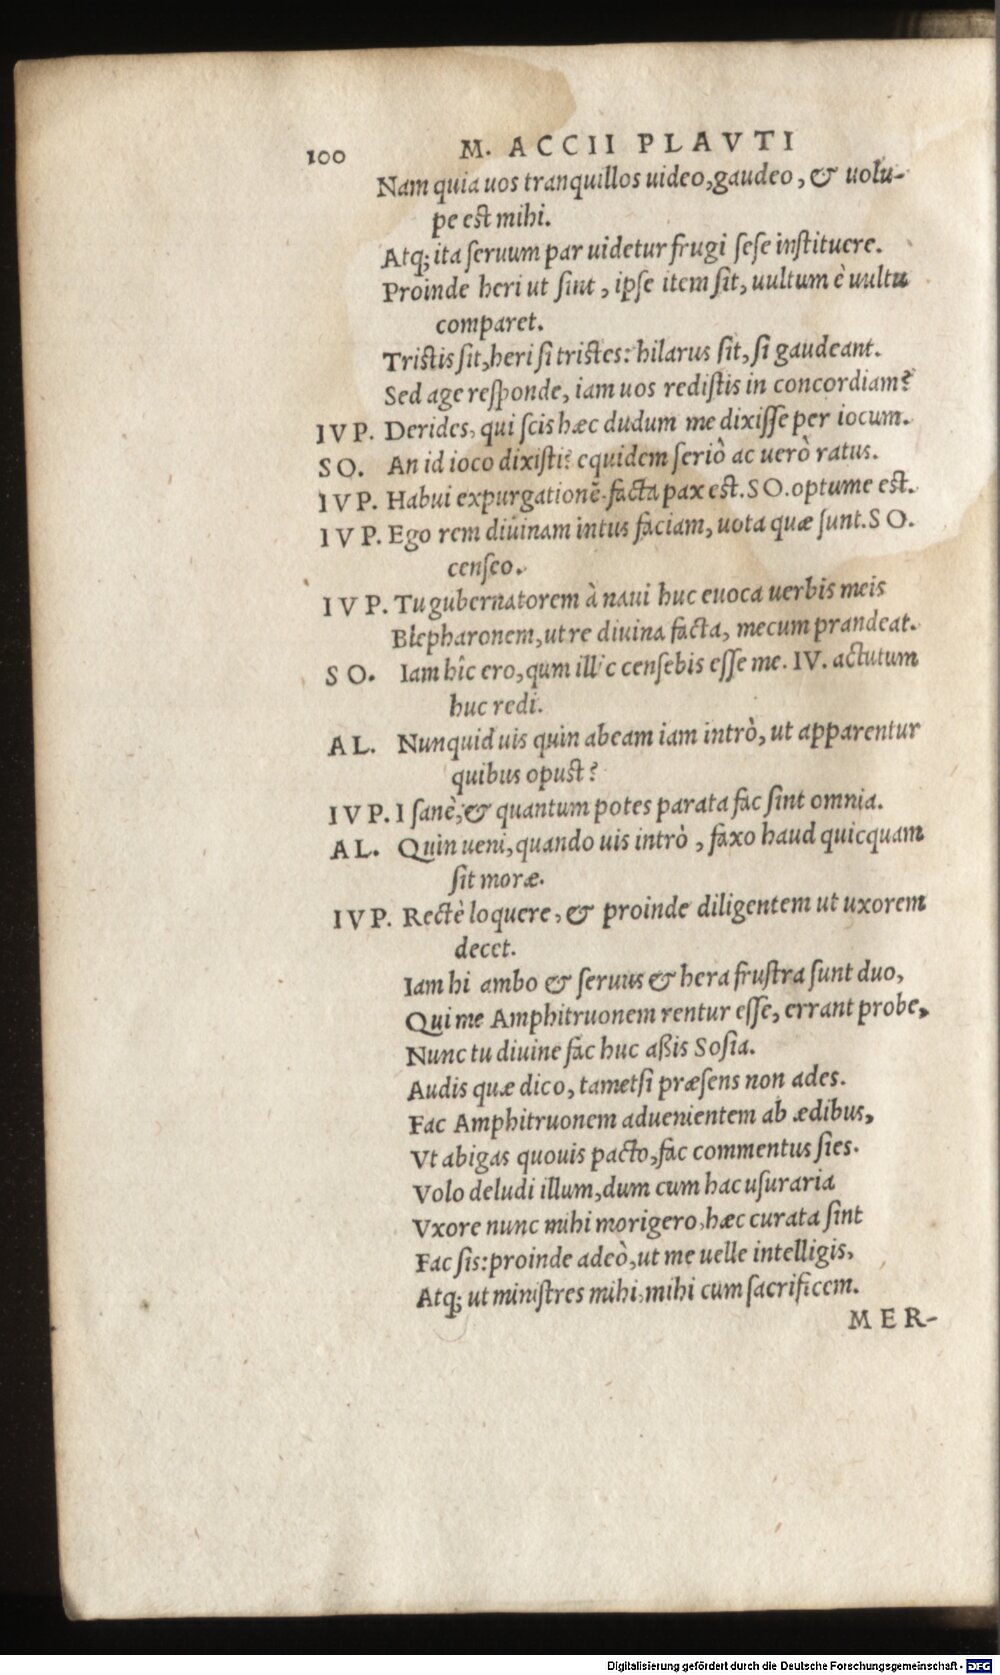 100 M. ACCII PLAVTI
Nam quia uos tranquillos uideo, gaudeo, & uolu-
pe est mihi.
Atq; ita seruum par uidetur frugi sese instituere.
Proinde heri ut sint, ipse item sit, uultum è uultu
comparet.
Tristis sit, heri si tristes: hilarus sit, si gaudeant.
Sed age responde, iam uos redistis in concordiam?
IVP. Derides, qui scis hæc dudum me dixisse per iocum.
SO. An id ioco dixisti? equidem seriò ac uerò ratus.
IVP. Habui expurgationẽ. facta pax est. SO. optume est.
IVP. Ego rem diuinam intus faciam, uota quæ sunt. SO.
censeo.
IVP. Tu gubernatorem à naui huc euoca uerbis meis
Blepharonem, ut re diuina facta, mecum prandeat.
SO. Iam hîc ero, qum illic censebis esse me. IV. actutum
huc redi.
AL. Nunquid uis quin abeam iam intrò, ut apparentur
quibus opust?
IVP. I sanè, & quantum potes parata fac sint omnia.
AL. Quin ueni, quando uis intrò, faxo haud quicquam
sit moræ.
IVP. Rectè loquere, & proinde diligentem ut uxorem
decet.
Iam hi ambo & seruus & hera frustra sunt duo,
Qui me Amphitruonem rentur esse, errant probe,
Nunc tu diuine fac huc aßis Sosia.
Audis quæ dico, tametsi præsens non ades.
Fac Amphitruonem aduenientem ab ædibus,
Vt abigas quouis pacto, fac commentus sies.
Volo deludi illum, dum cum hac usuraria
Vxore nunc mihi morigero, hæc curata sint
Fac sis: proinde adeò, ut me uelle intelligis,
Atq; ut ministres mihi, mihi cum sacrificem.
MER-
Digitalisierung gefördert durch die Deutsche Forschungsgemeinschaft - DFG